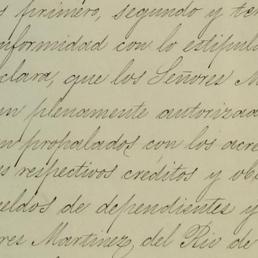 s primero, segundo y te
nformidad con lo estipul
clara, que los Señores M
n plenamente autoriza
n propalados con los acre
s respectivos créditos y ob
eldos de dependientes y
res Martinez, del Rio de